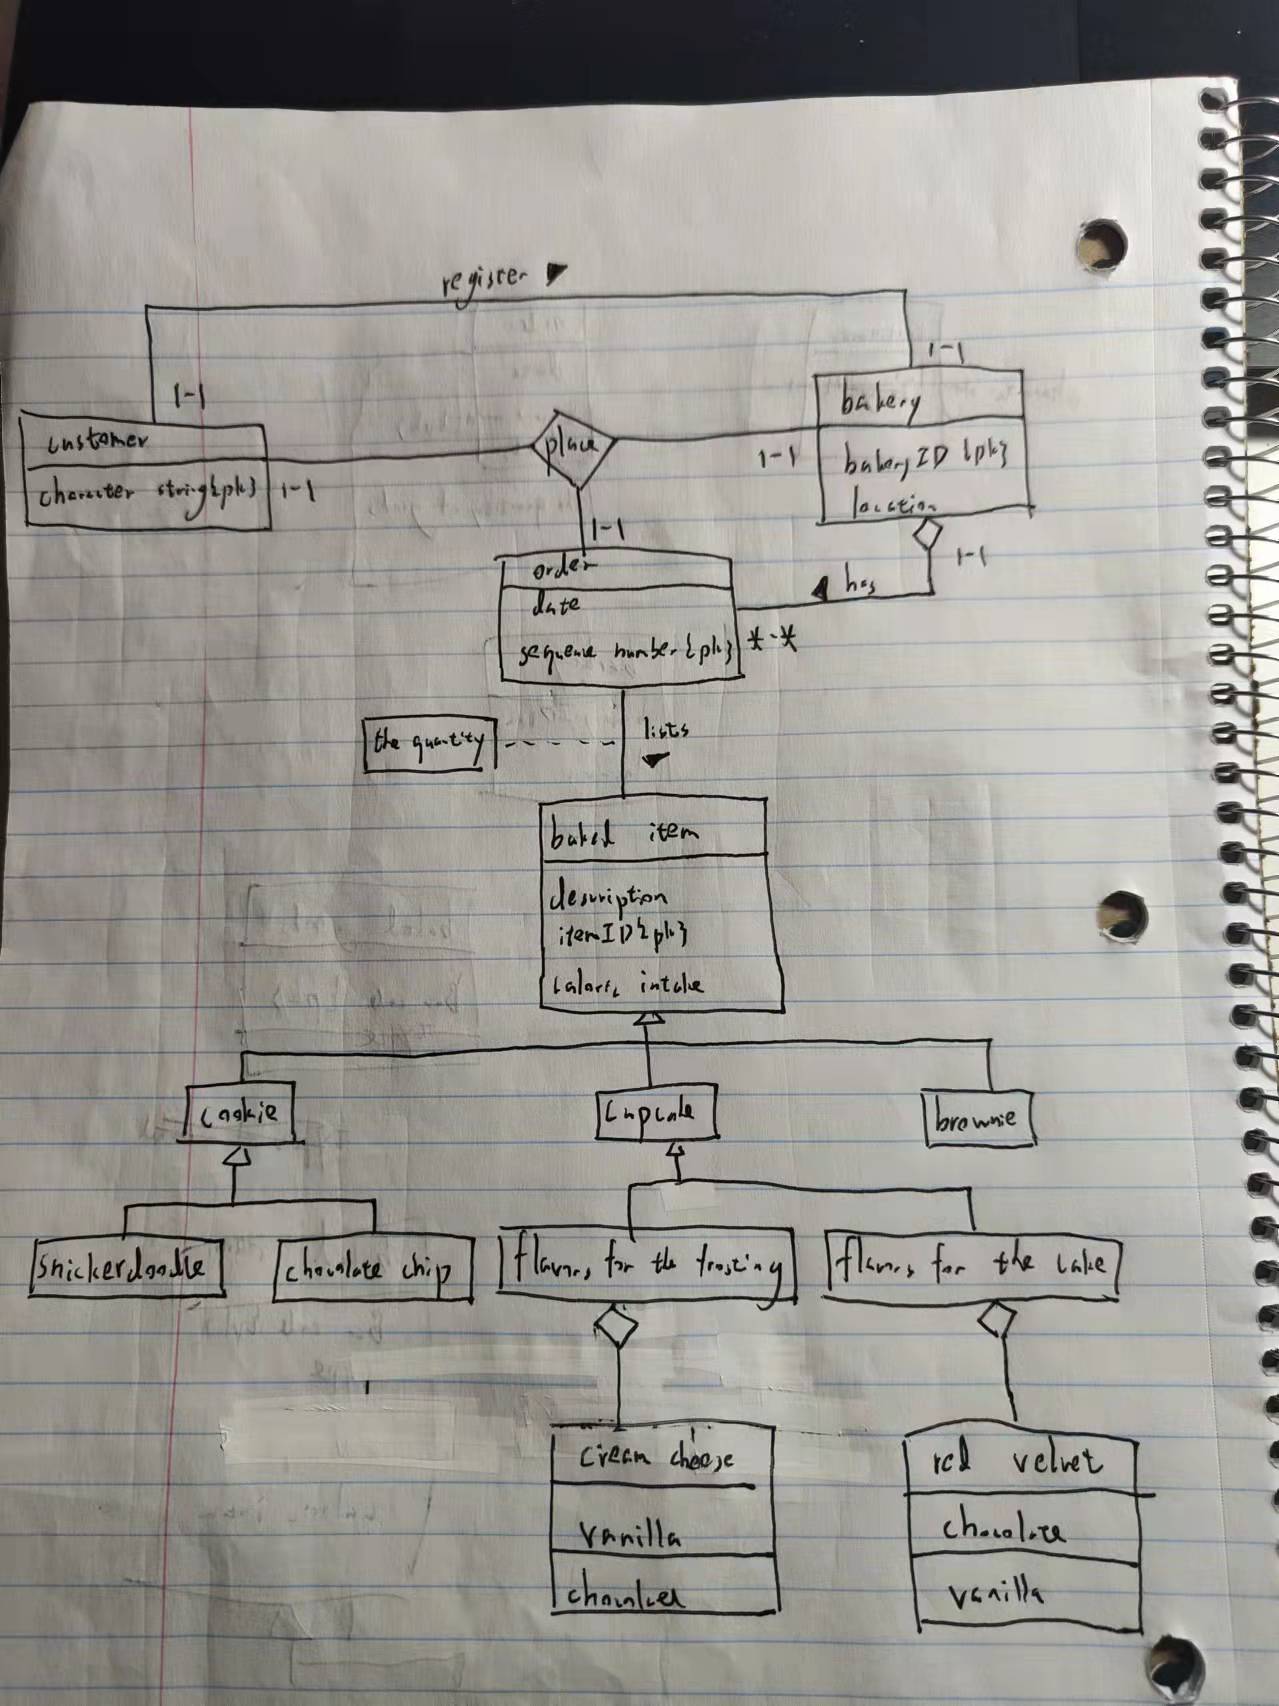 register
1-1
1-1
customer
character string{pk}
1-1
place
1-1
bakery
bakeryID {pk}
location
1-1
1-1
has
order
date
sequence number{pk}
*-*
the quantity
lists
baked item
description
itemID{pk}
intake
cookie
cupcake
brownie
snickerdoodle
chocolate chip
flavors for the frosting
flavors for the cake
cream cheese
vanilla
red velvet
chocolate
vanilla